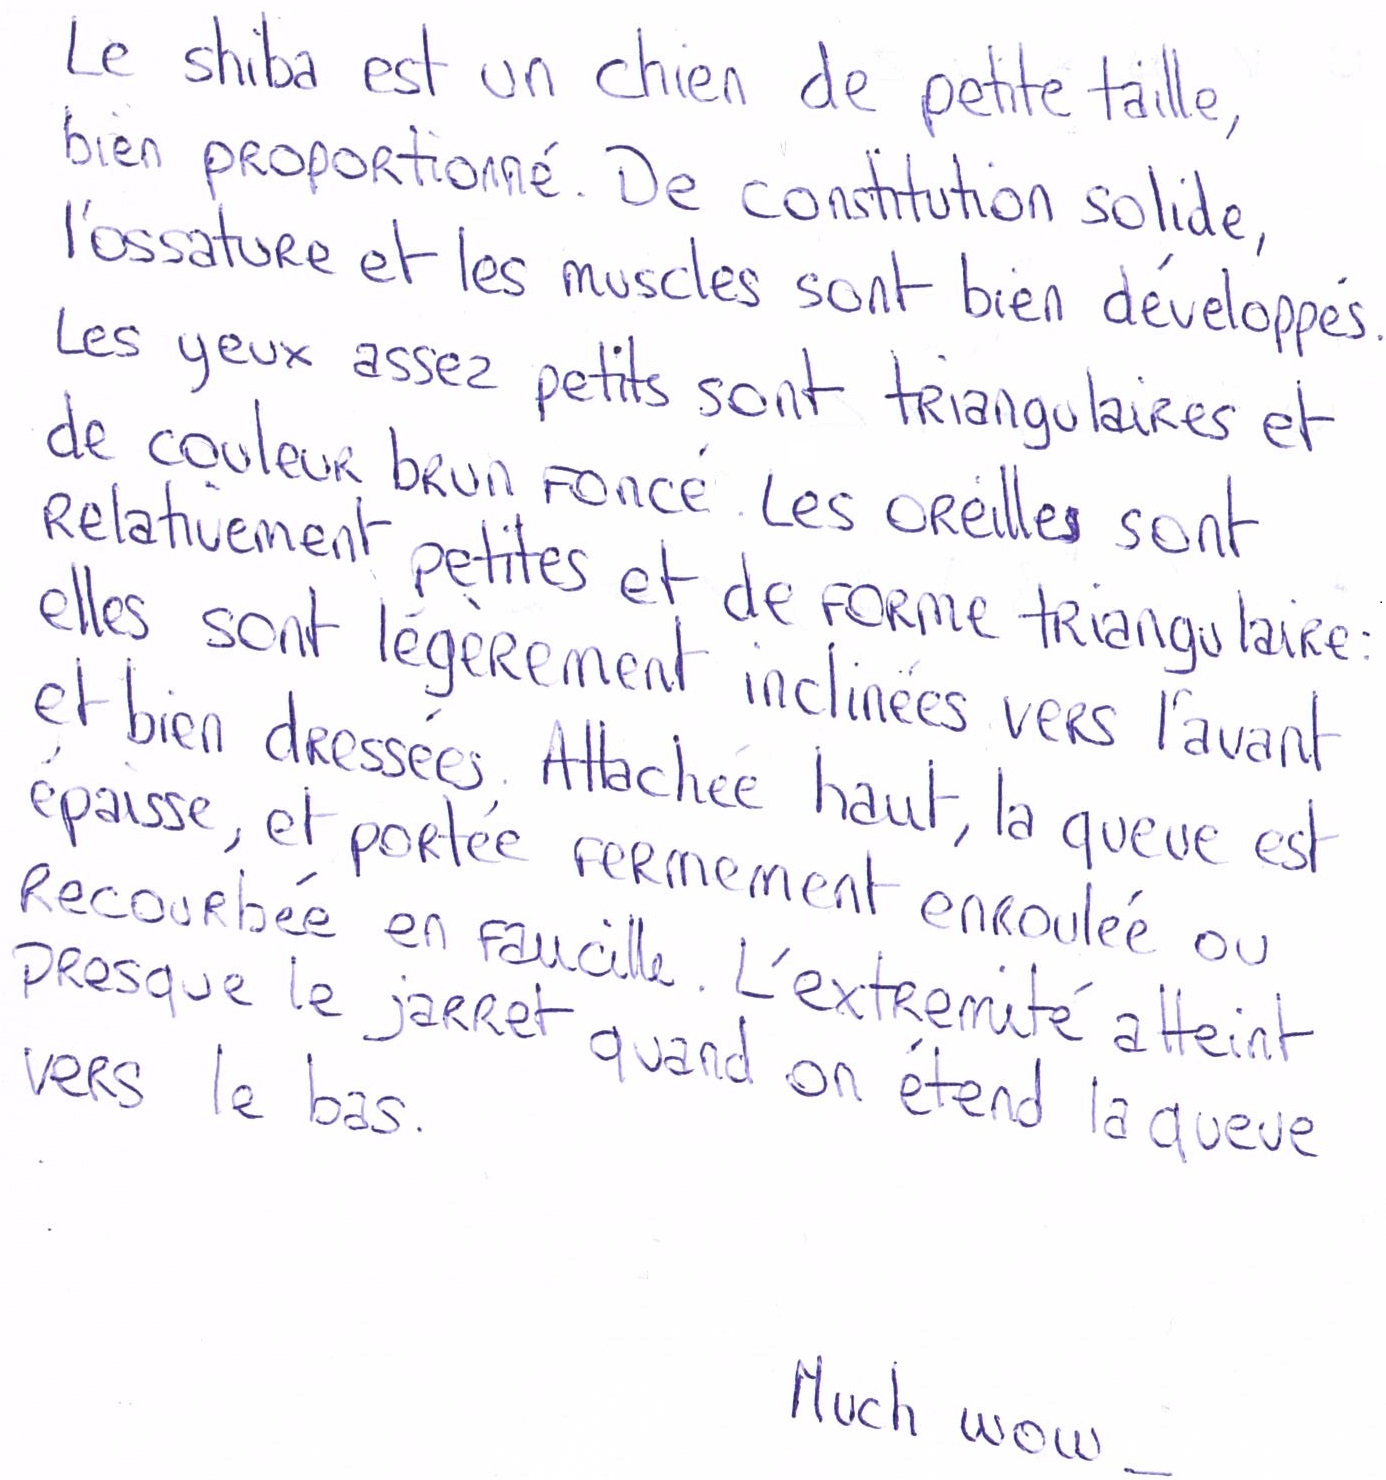 Le shiba est un chien de petite taille,
bien proportionné. De constitution solide,
l'ossature et les muscles sont bien développés.
Les yeux assez petits sont triangulaires et
de couleur brun foncé. Les oreilles sont
relativement petites et de forme triangulaire :
elles sont légèrement inclinées vers l'avant
et bien dressées. Attachée haut, la queue est
épaisse, et portée fermement enroulée ou
recourbée en faucille. L'extremité atteint
presque le jarret quand on étend la queue
vers le bas.
Much wow_